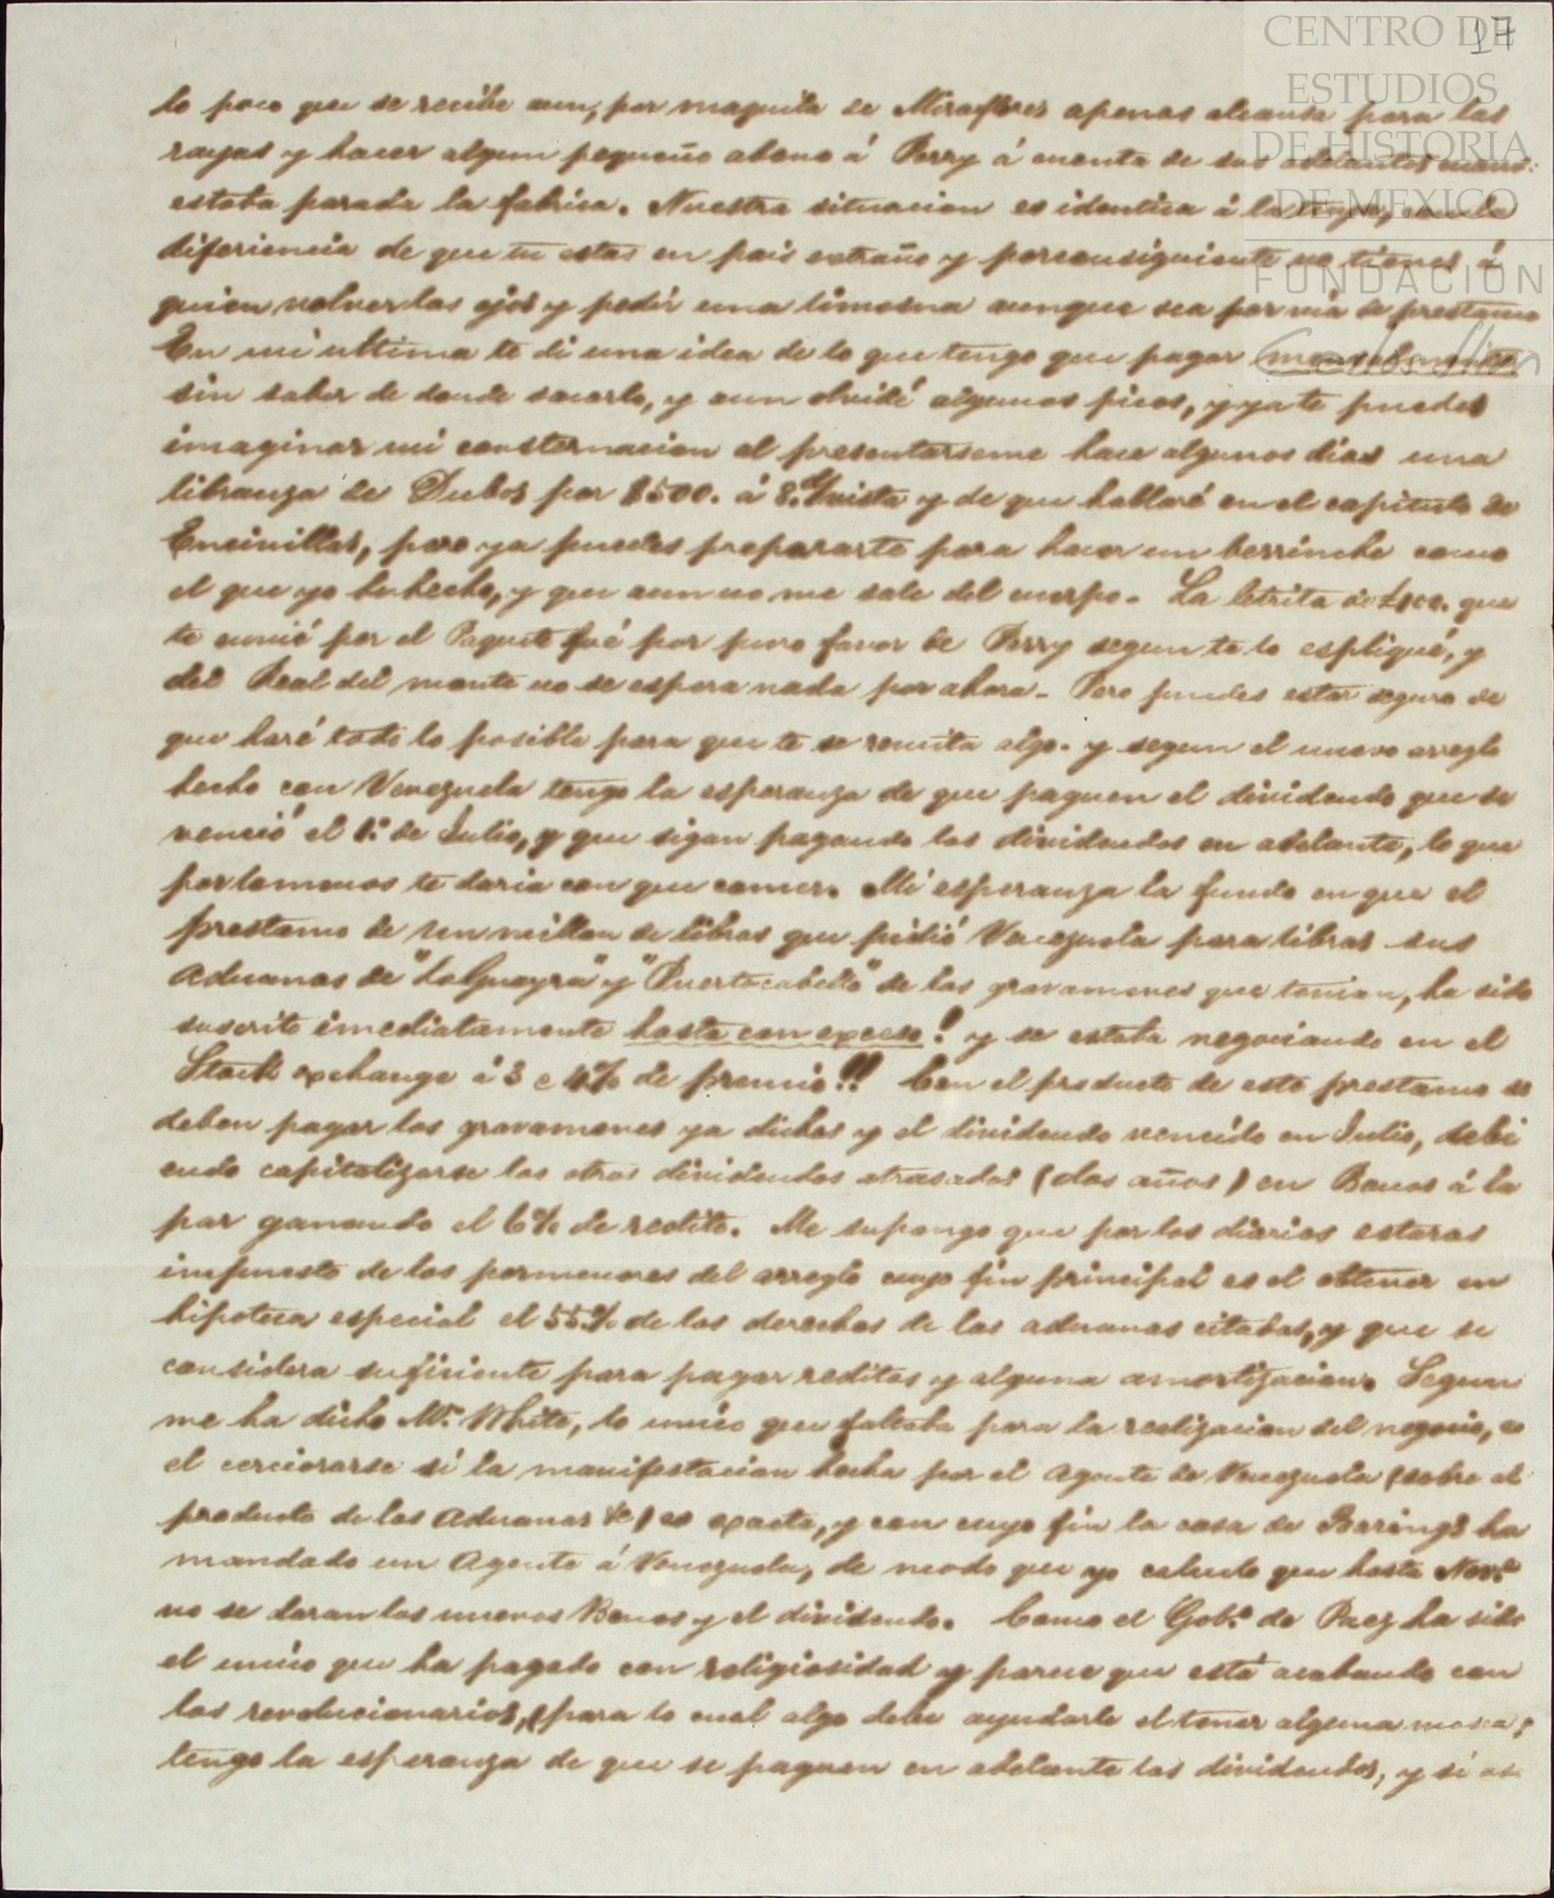 17
CENTRO DE
ESTUDIOS
DE HISTORIA
DE MEXICO
FUNDACIÓN
Carlos Slim
lo poco que se recibe aun, por maquila de Miraflores apenas alcansa para las
rayas y hacer algun pequeño abono á Perry á cuenta de sus adelantos
estaba parada la fabrica. Nuestra situacion es identica á la tuya, con la
diferiencia de que tu estas en pais extraño y porconsiguiente no tienes á
quien volver los ojos y pedir una limosna aunque sea por via de prestamo
En mi ultima te di una idea de lo que tengo que pagar mensualmente
sin saber de donde sacarlo, y aun olvidé algunos picos, y ya te puedes
imaginar mi consternacion al presentarseme hace algunos dias una
libranza de Dubos por $500. á 8. d/vista y de que hablaré en el capitulo de
Encinillas, pero ya puedes prepararte para hacer un berrinche como
el que yo he hecho, y que aun no me sale del cuerpo. La letrita de que
te envié por el Paquete fué por puro favor de Perry segun te lo espliqué, y
del Real del monte no se espera nada por ahora. Pero puedes estar seguro de
que haré todo lo posible para que te se remita algo. y segun el nuevo arreglo
hecho con Venezuela tengo la esperanza de que paguen el dividendo que se
venció el 1.º de Julio, y que sigan pagando los dividendos en adelante, lo que
por lo menos te daria con que comer. Mi esperanza la fundo en que el
prestamo de un millon de libras que pidió Venezuela para librar sus
Aduanas de "La Guayra" y "Puertocabello" de los gravamenes que tenian, ha sido
suscrito imediatamente hasta con exceso! y se estaba negociando en el
Stock exchange á 3 e 4% de premio!!! Con el producto de este prestamo se
deben pagar los gravamenes ya dichos y el dividendo vencido en Julio, debi
endo capitalizarse los otros dividendos atrasados (dos años) en Bonos á la
par ganando el 6% de redito. Me supongo que por los diarios estaras
impuesto de los pormenores del arreglo cuyo fin principal es el obtener en
hipoteca especial el 55% de los derechos de las aduanas citadas, y que se
considera suficiente para pagar reditos y alguna amortizacion. Segun
me ha dicho Mr. White, lo unico que faltaba para la realizacion del negocio, es
el cerciorarse si la manifestacion hecha por el Agente de Venezuela (sobre el
producto de las Aduanas &c) es exacta, y con cuyo fin la casa de Barings ha
mandado un Agente á Venezuela, de modo que yo calculo que hasta Nov.e
no se daran los nuevos Bonos y el dividendo. Como el Gob.o de Paez ha sido
el unico que ha pagado con religiosidad y parece que está acabando con
los revolucionarios, (para lo cual algo debe ayudarle el tener alguna mosca)
tengo la esperanza de que se paguen en adelante los dividendos, y si